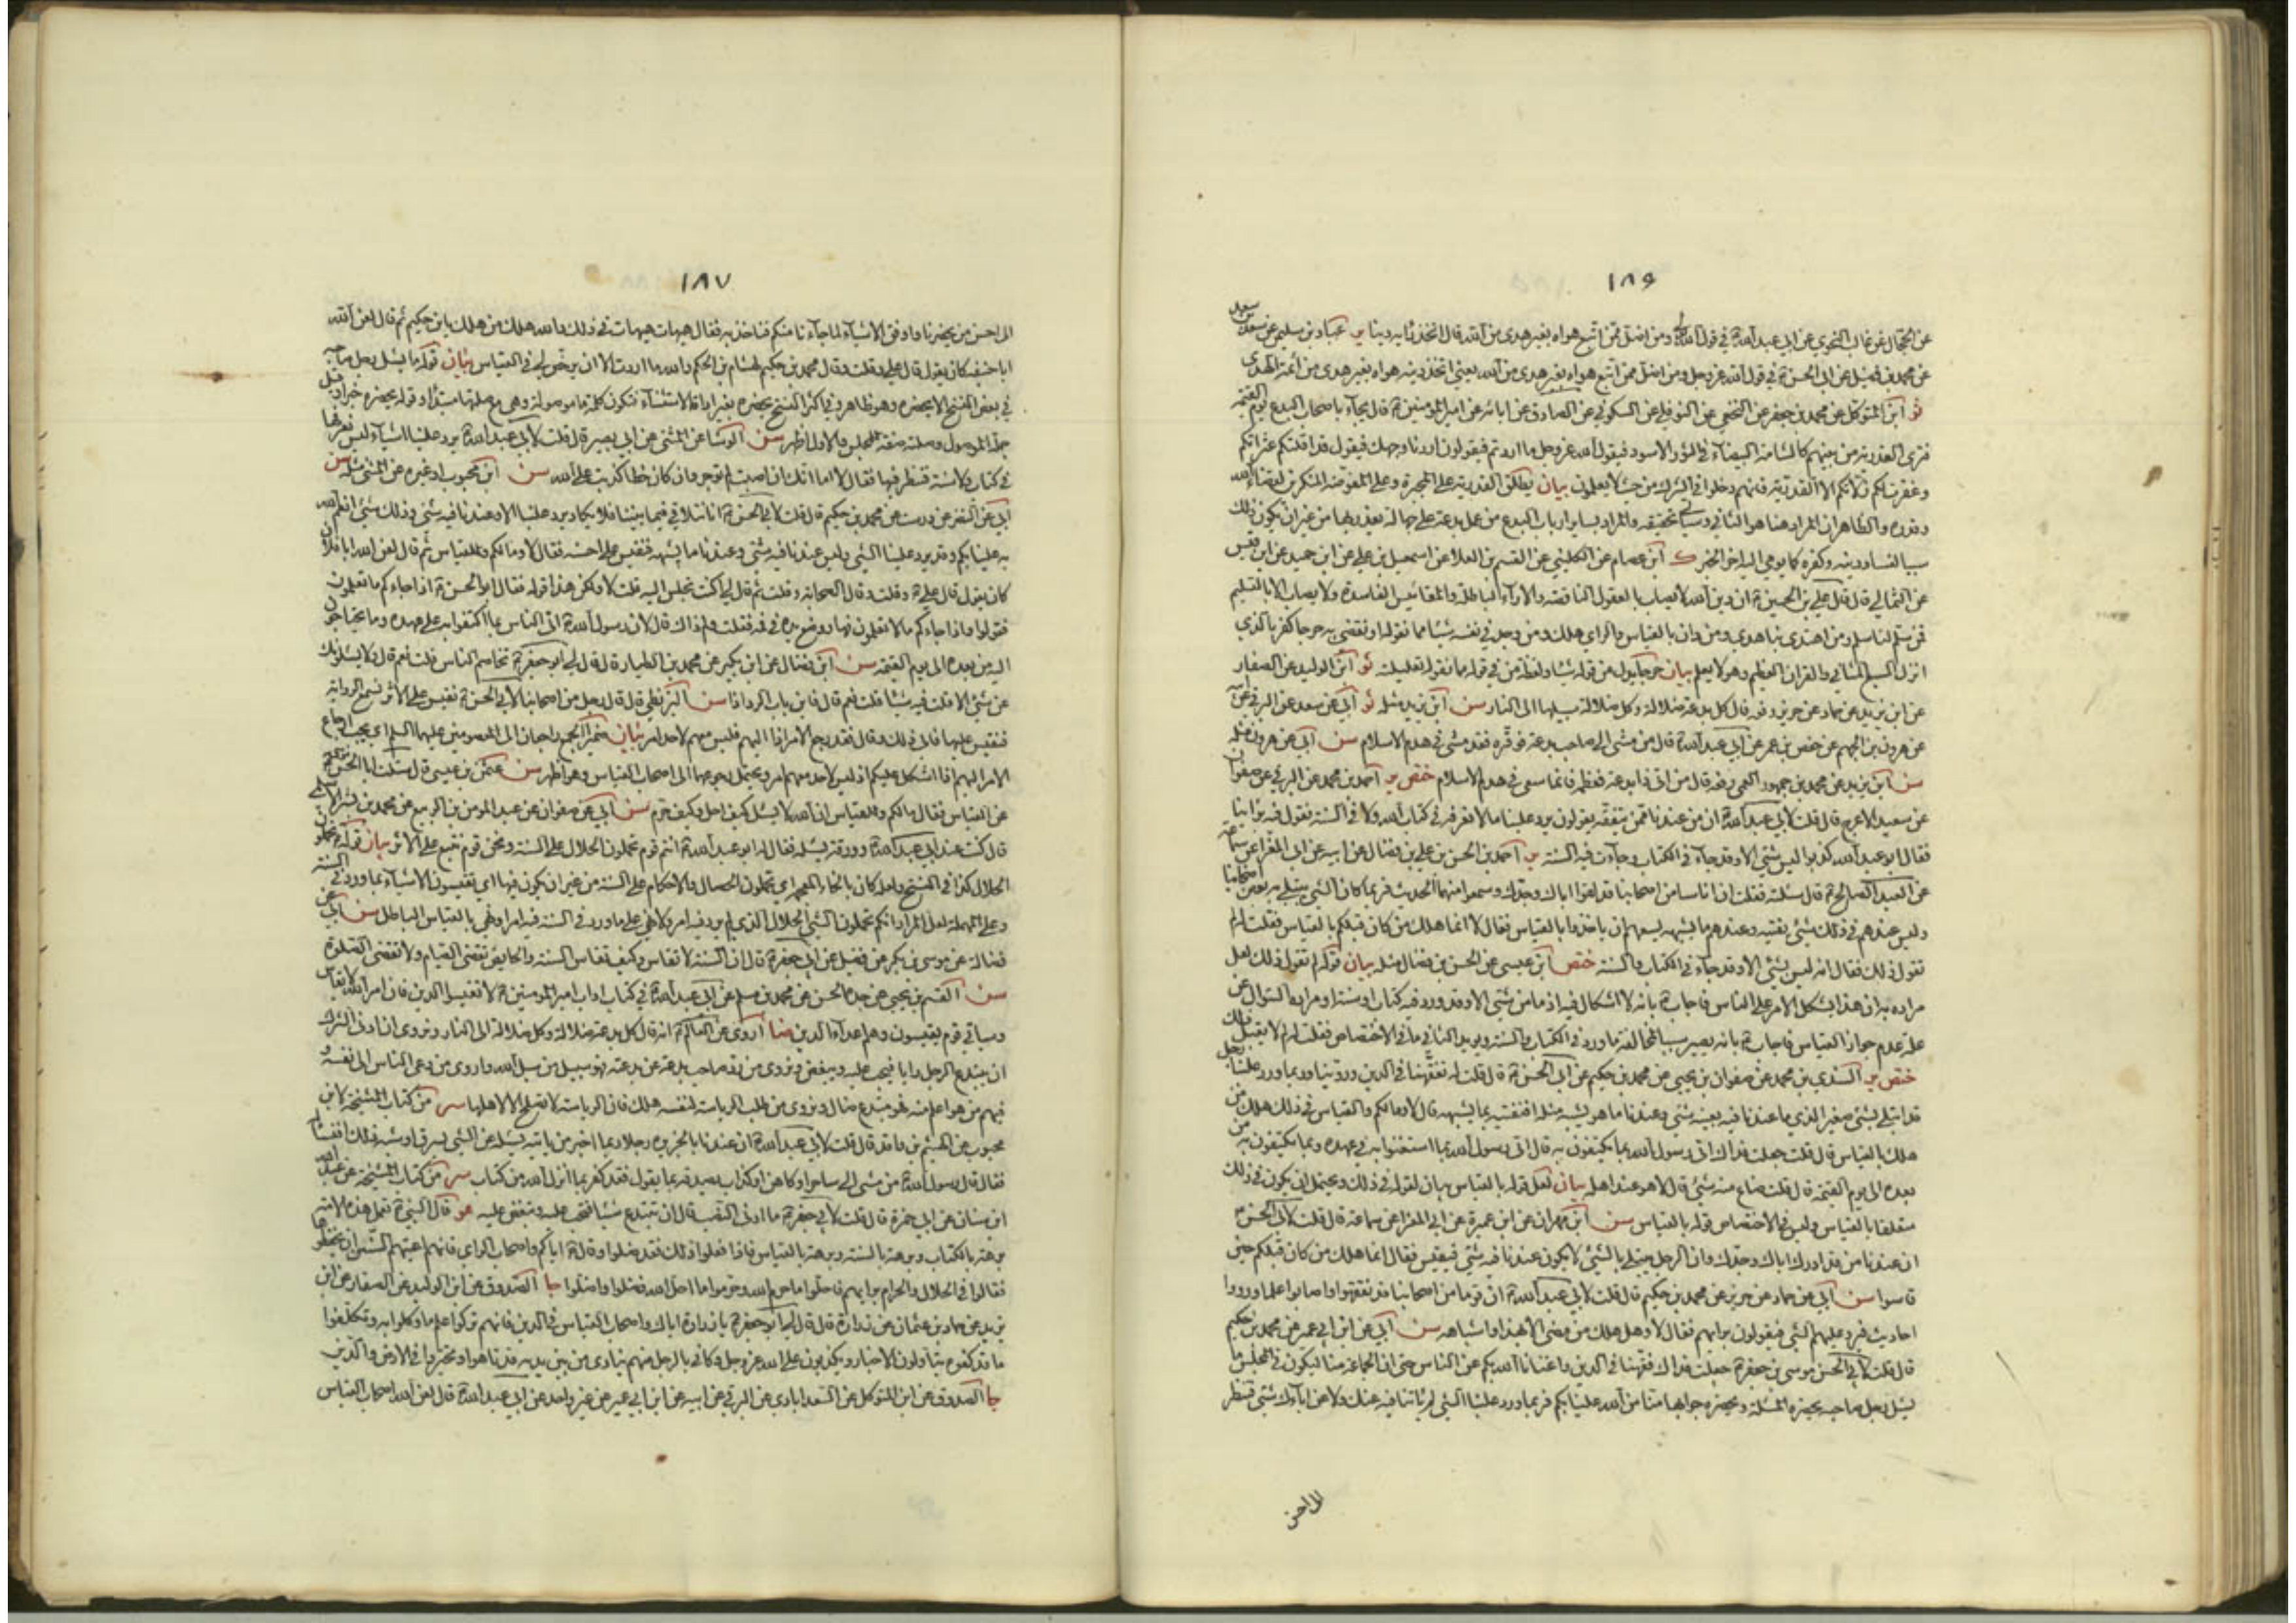 ١٨٦
عن الحجال عن غالب النحوي عن ابي عبد الله ع في قول الله ومن اضل ممن اتبع هواه بغير هدى من الله قال اتخذ رأيه دينا ير عباد بن سليمن عن سعد بن سعد
عن محمد بن فضيل عن ابي الحسن ع في قول الله عز وجل ومن اضل ممن اتبع هواه بغير هدى من الله يعني اتخذ دينه هواه بغير هدى من ائمة الهدى
ثو ابن المتوكل عن محمد بن جعفر عن النخعي عن النوفلي عن السكوني عن الصادق عن ابائه عن امير المؤمنين ع قال يجاء باصحاب البدع يوم القيمة
فترى القدرية من بينهم كالشامة البيضاء في الثور الاسود فيقول الله عز وجل ما اردتم فيقولون اردنا وجهك فيقول قد اقلتكم عثراتكم
وغفرت لكم زلاتكم الا القدرية فانهم دخلوا في الشرك من حيث لا يعلمون بيان يطلق القدرية على المجبرة وعلى المفوضة المنكرين لقضاء الله
وقدره والظاهر ان المراد هنا هو الثاني وسياتي تحقيقه والمراد بساير ارباب البدع من عمل بدعة على جهالة يعذر بها من غير ان يكون ذلك
سببا لفساد دينه وكفره كما يومي اليه اخر الخبر ك ابن عصام عن الكليني عن القسم بن العلا عن اسمعيل بن علي عن ابن حميد عن ابن قيس
عن الثمالي قال قال علي بن الحسين ع ان دين الله لا يصاب بالعقول الناقصة والاراء الباطلة والمقائيس الفاسدة ولا يصاب الا بالتسليم
فمن سلم لنا سلم ومن اهتدى بنا هدي ومن دان بالقياس والراي هلك ومن وجد في نفسه شيئا مما نقوله او نقضي به حرجا كفر بالذي
انزل السبع المثاني والقران العظيم وهو لا يعلم بيان حرجا بدل من قوله شيئا ولفظة من في قوله مما نقوله تعليلية ثو ابن الوليد عن الصفار
عن ابن يزيد عن حماد عن حريز رفعه قال كل بدعة ضلالة وكل ضلالة سبيلها الى النار سن ابن يزيد مثله ثو ابي عن سعد عن البرقي عن ابيه
عن هرون بن الجهم عن حفص بن عمر عن ابي عبد الله ع قال من مشى الى صاحب بدعة فوقره فقد مشى في هدم الاسلام سن ابي عن هرون مثله
سن ابن يزيد عن محمد بن جمهور العمي رفعه قال من اتى ذا بدعة فعظمه فانما سعى في هدم الاسلام ختص ير احمد بن محمد عن البرقي عن صفوان
عن سعيد الاعرج قال قلت لابي عبد الله ع ان من عندنا ممن يتفقه يقولون يرد علينا ما لا نعرفه في كتاب الله ولا في السنة نقول فيه براينا
فقال ابو عبد الله كذبوا ليس شئ الا وقد جاء في الكتاب وجاءت فيه السنة ير احمد بن الحسن بن علي بن فضال عن ابيه عن ابي المغرا عن سماعة
عن العبد الصالح ع قال سئلته فقلت ان اناسا من اصحابنا قد لقوا اباك وجدك وسمعوا منهما الحديث فربما كان الشئ يبتلى به بعض اصحابنا
وليس عندهم في ذلك شئ يفتيه وعندهم ما يشبهه يسعهم ان ياخذوا بالقياس فقال لا انما هلك من كان قبلكم بالقياس فقلت له لم
تقول ذلك فقال انه ليس بشئ الا وقد جاء في الكتاب والسنة ختص ابن عيسى عن الحسن بن فضال مثله بيان قوله لم تقول ذلك لعل
مراده به ان هذا يشكل الامر على الناس فاجاب ع بانه لا اشكال فيه اذ ما من شئ الا وقد ورد فيه كتاب او سنة او مراده السؤال عن
علة عدم جواز القياس فاجاب ع بانه يصير سببا لمخالفة ما ورد في الكتاب والسنة ويؤيد الثاني ما في الاختصاص فقلت له لم لا يقبل ذلك
ختص ير السندي بن محمد عن صفوان بن يحيى عن محمد بن حكيم عن ابي الحسن ع قال قلت له تفقهنا في الدين وروينا وربما ورد علينا رجل
قد ابتلي بشئ صغير الذي ما عندنا فيه بعينه شئ وعندنا ما هو يشبه مثله افنفتيه بما يشبهه قال لا وما لكم والقياس في ذلك هلك من
هلك بالقياس قال قلت جعلت فداك اتى رسول الله بما يكتفون به قال اتى رسول الله بما استغنوا به في عهده وبما يكتفون به من
بعده الى يوم القيمة قال قلت ضاع منه شئ قال لا هو عند اهله بيان لعل قوله بالقياس بيان لقوله في ذلك ويحتمل ان يكون في ذلك
متعلقا بالقياس وليس في الاختصاص قوله بالقياس سن ابن مهران عن ابن عميرة عن ابي المغرا عن سماعة قال قلت لابي الحسن ع
ان عندنا من قد ادرك اباك وجدك وان الرجل يبتلى بالشئ لا يكون عندنا فيه شئ فيقيس فقال انما هلك من كان قبلكم حين
قاسوا سن ابي عن حماد عن حريز عن محمد بن حكيم قال قلت لابي عبد الله ع ان قوما من اصحابنا قد تفقهوا واصابوا علما ورووا
احاديث فيرد عليهم الشئ فيقولون برايهم فقال لا وهل هلك من مضى الا بهذا واشباهه سن ابي عن ابن ابي عمير عن محمد بن حكيم
قال قلت لابي الحسن موسى بن جعفر ع جعلت فداك فقهنا في الدين واغنانا الله بكم عن الناس حتى ان الجماعة منا ليكون في المجلس ما
يسئل رجل صاحبه يحضره المسئلة ويحضره جوابها منا من الله علينا بكم فربما ورد علينا الشئ لم ياتنا فيه عنك ولا عن ابائك شئ فننظر
الى احسن
١٨٧
الى احسن من يحضرنا واوفق الاشياء لما جاءنا منكم فناخذ به فقال هيهات هيهات في ذلك والله هلك من هلك يابن حكيم ثم قال لعن الله
ابا حنيفة كان يقول قال علي وقلت وقال محمد بن حكيم لهشام بن الحكم والله ما اردت الا ان يرخص لي في القياس بيان قوله ما يسئل رجل صاحبه
في بعض النسخ الا يحضره وهو ظاهر وفي اكثر النسخ يحضره بغير اداة الاستثناء فتكون كلمة ما موصولة وهي مع صلتها مبتدأ وقوله يحضره خبر او قبل
جملة الموصول وصلته صفة للمجلس والاول اظهر سن الوشا عن المثنى عن ابي بصير قال قلت لابي عبد الله ع يرد علينا اشياء ليس نعرفها
في كتاب ولا سنة فننظر فيها فقال لا اما انك ان اصبت لم تؤجر وان كان خطأ كذبت على الله سن ابن محبوب او غيره عن المثنى مثله سن
ابي عن النضر عن درست عن محمد بن حكيم قال قلت لابي الحسن ع انا نتلاقى فيما بيننا فلا يكاد يرد علينا الا وعندنا فيه شئ وذلك شئ انعم الله
به علينا بكم وقد يرد علينا الشئ وليس عندنا فيه شئ وعندنا ما يشبهه فنقيس على احسنه فقال لا وما لكم وللقياس ثم قال لعن الله ابا فلان
كان يقول قال علي ع وقلت وقال الصحابة وقلت ثم قال لي اكنت تجلس اليه قلت لا ولكن هذا قوله فقال ابو الحسن ع اذا جاءكم ما تعلمون
فقولوا واذا جاءكم ما لا تعلمون فها ووضع يده على فمه فقلت ولم ذاك قال لان رسول الله ع اتى الناس بما اكتفوا به على عهده وما يحتاجون
اليه من بعده الى يوم القيمة سن ابن فضال عن ابن بكير عن محمد بن الطيار قال قال لي ابو جعفر ع تخاصم الناس قلت نعم قال ولا يسئلونك
عن شئ الا قلت فيه شيئا قلت نعم قال فاين باب الرد اذا سن البزنطي قال قال رجل من اصحابنا لابي الحسن ع نقيس على الاثر نسمع الرواية
فنقيس عليها فابى ذلك وقال فقد رجع الامر اذا اليهم فليس معهم لاحد امر بيان ضميرا الجمع راجعان الى المعصومين عليهم السلم اي يجب ارجاع
الامر اليهم اذا اشكل عليكم اذ ليس لاحد معهم امر ويحتمل رجوعهما الى اصحاب القياس وهو اظهر سن عثمن بن عيسى قال سئلت ابا الحسن موسى ع
عن القياس فقال ما لكم وللقياس ان الله لا يسئل كيف احل وكيف حرم سن ابي عن صفوان عن عبد المؤمن بن الربيع عن محمد بن بشر الاسلمي
قال كنت عند ابي عبد الله ع وورقة يسئله فقال له ابو عبد الله ع انتم قوم تحملون الحلال على السنة ونحن قوم نتبع على الاثر بيان قوله ع تحملون
الحلال كذا في النسخ ولعله كان بالخاء المعجمة اي تحملون الخصال والاحكام على السنة من غير ان يكون فيها اي تقيسون الاشياء بما ورد في السنة
وعلى المهملة لعل المراد انكم تحملون الشئ الحلال الذي لم يرد فيه امر ولا نهي على ما ورد في السنة فيه امر او نهي بالقياس الباطل سن ابي عن
فضالة عن موسى بن بكر عن فضيل عن ابي جعفر ع قال ان السنة لا تقاس وكيف تقاس السنة والحايض تقضي الصيام ولا تقضي الصلوة
سن القسم بن يحيى عن جده الحسن عن محمد بن مسلم عن ابي عبد الله ع في كتاب اداب امير المؤمنين ع لا تقيسوا الدين فان امر الله لا يقاس
وسياتي قوم يقيسون وهم اعداء الدين ضا اروي عن العالم ع انه قال كل بدعة ضلالة وكل ضلالة الى النار ونروي ان ادنى الشرك
ان يبتدع الرجل رايا فيحب عليه ويبغض ونروي من رد صاحب بدعة عن بدعته فهو سبيل من سبل الله واروي من دعى الناس الى نفسه و
فيهم من هو اعلم منه فهو مبتدع ضال ونروي من طلب الرياسة لنفسه هلك فان الرياسة لا تصلح الا لاهلها سر من كتاب المشيخة لابن
محبوب عن الهيثم بن واقد قال قلت لابي عبد الله ع ان عندنا بالجزيرة رجلا ربما اخبر من ياتيه يسئله عن الشئ يسرق او شبه ذلك افنسئله
فقال قال رسول الله ع من مشى الى ساحر او كاهن او كذاب يصدقه بما يقول فقد كفر بما انزل الله من كتاب سر من كتاب المشيخة عن عبد الله
ابن سنان عن ابي حمزة قال قلت لابي جعفر ع ما ادنى النصب قال ان تبتدع شيئا فتحب عليه وتبغض عليه غو قال النبي ع تعمل هذه الامة
برهة بالكتاب وبرهة بالسنة وبرهة بالقياس فاذا فعلوا ذلك فقد ضلوا وقال ع اياكم واصحاب الراي فانهم اعيتهم السنن ان يحفظوها
فقالوا في الحلال والحرام برايهم فاحلوا ما حرم الله وحرموا ما احل الله فضلوا واضلوا جا الصدوق عن ابن الوليد عن الصفار عن ابن
يزيد عن حماد بن عثمان عن زرارة قال قال لي ابو جعفر ع يا زرارة اياك واصحاب القياس في الدين فانهم تركوا علم ما وكلوا به وتكلفوا
ما قد كفوه يتاولون الاخبار ويكذبون على الله عز وجل وكاني بالرجل منهم ينادى من بين يديه قد تاهوا وتحيروا في الارض والدين
جا الصدوق عن ابن المتوكل عن السعدابادي عن البرقي عن ابيه عن ابن ابي عمير عن غير واحد عن ابي عبد الله ع قال لعن الله اصحاب القياس